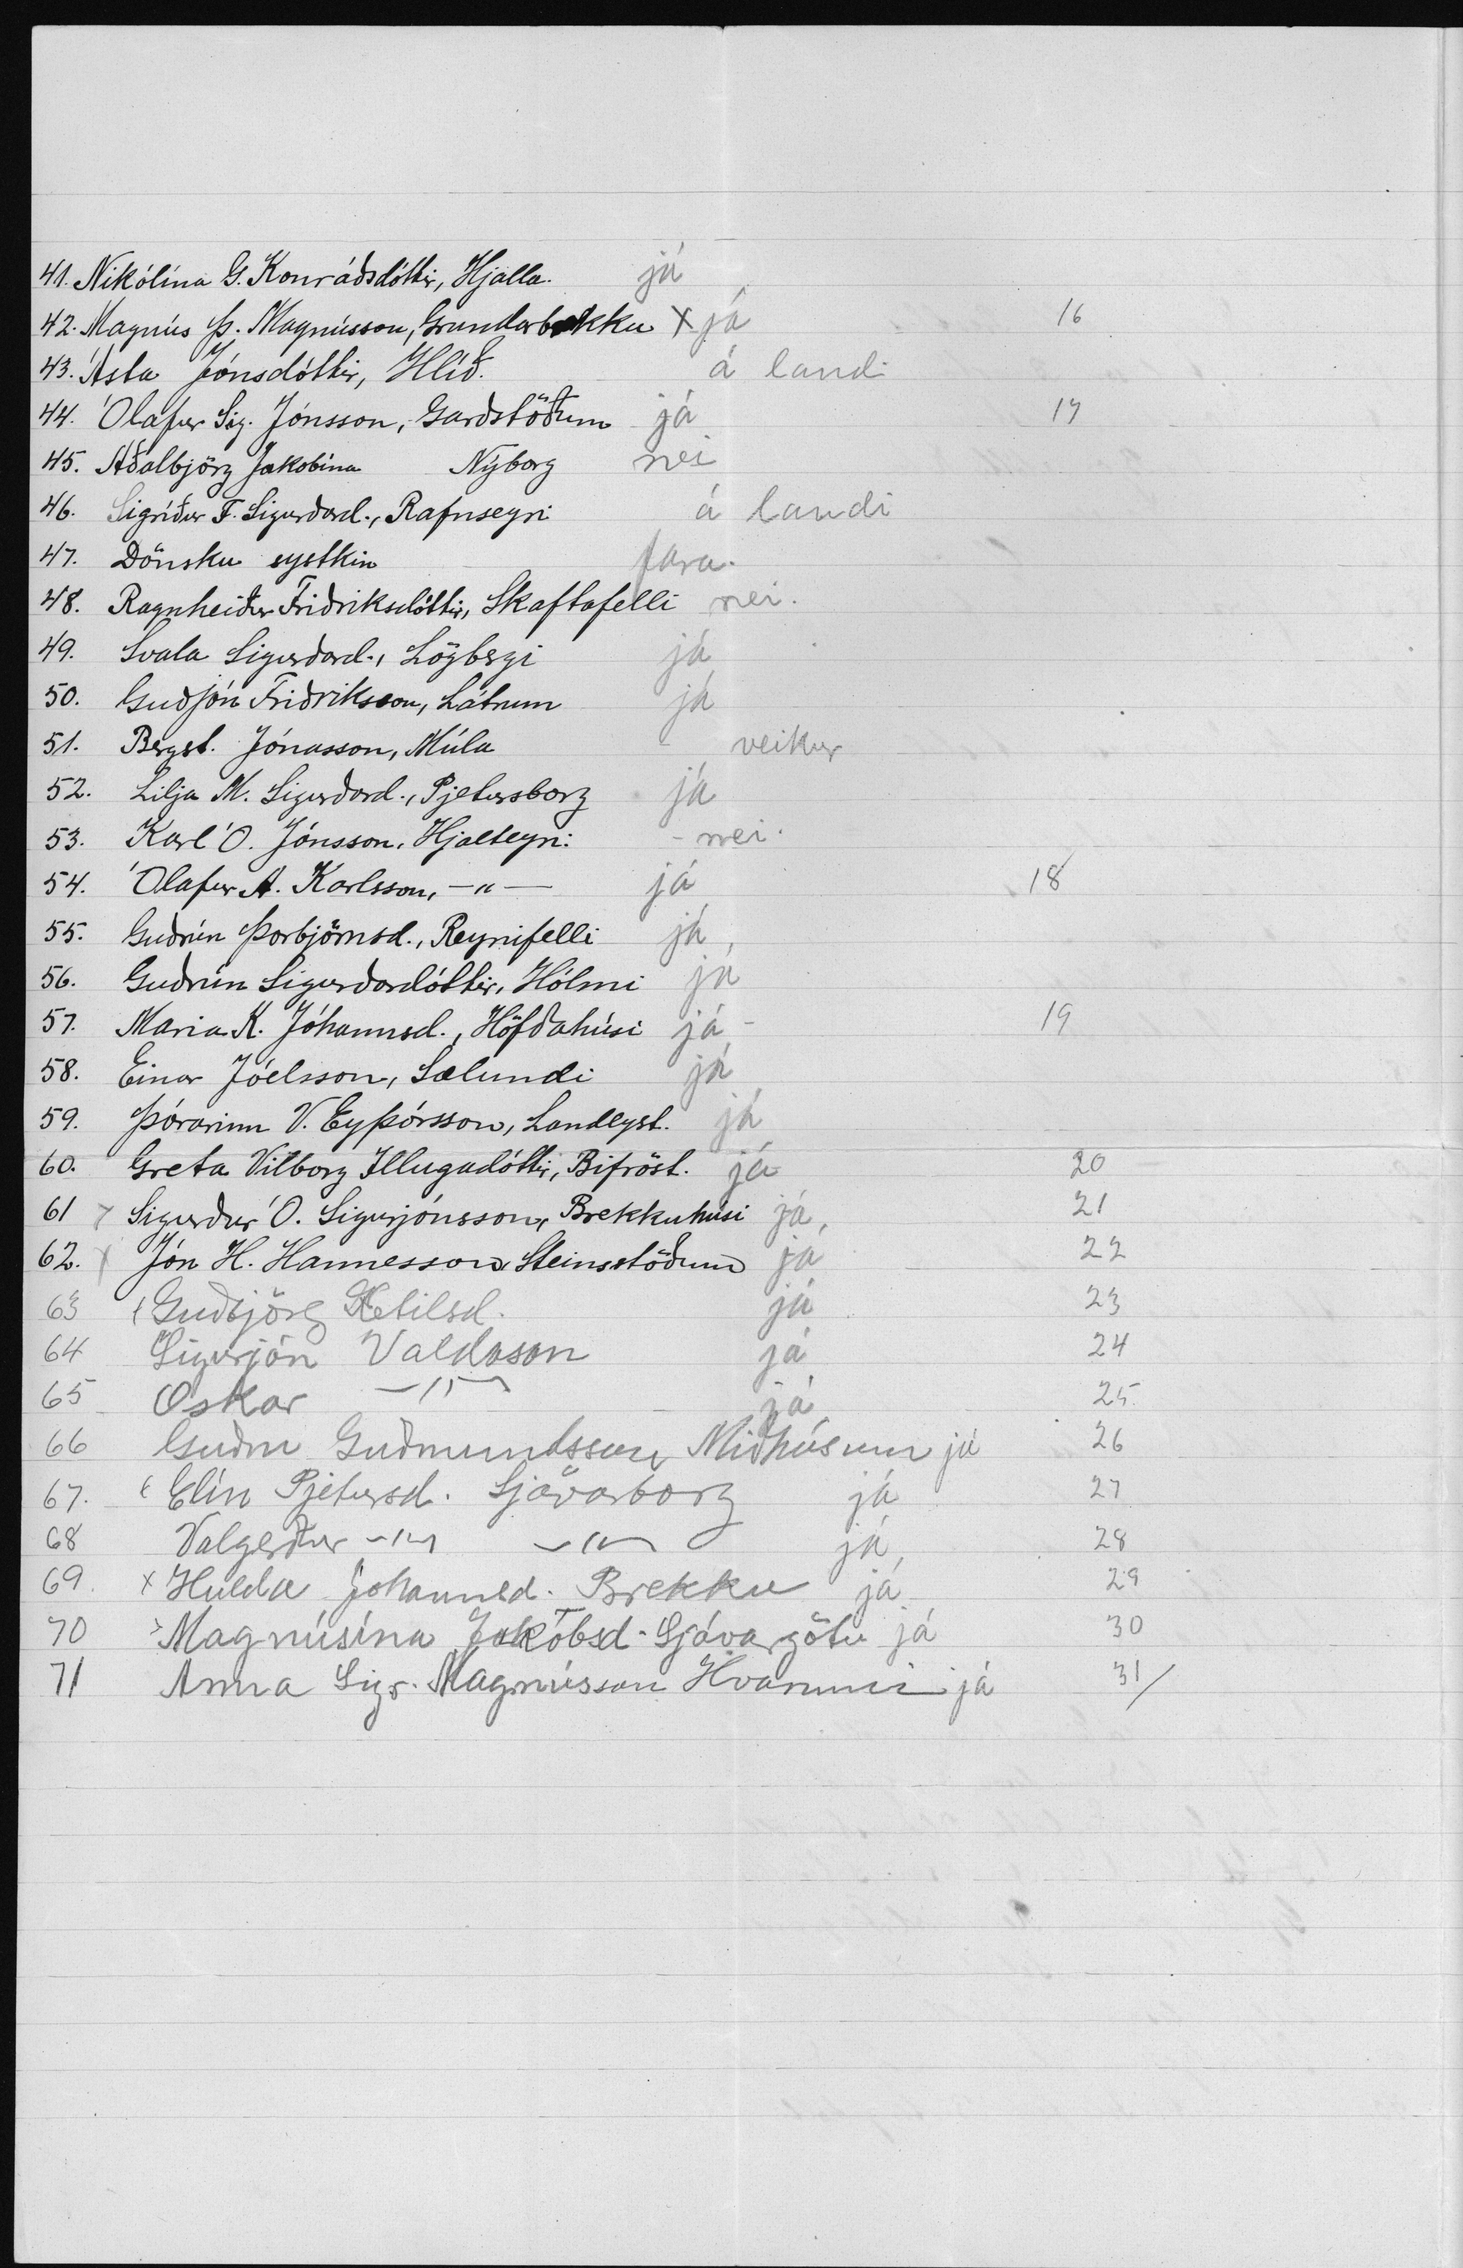 41. Nikólína G. Konráðsdóttir, Hjalla. já
42. Magnús Þ. Magnússon, Grundarbrekku X já 16
43. Ásta Jónsdóttir, Hlíð. á landi
44. Ólafur Sig. Jónsson, Garðstöðum já 17
45. Aðalbjörg Jakobína Nýborg nei
46. Sigríður F. Sigurðard., Rafnseyri á landi
47. Dönsku systkin fara.
48. Ragnheiður Friðriksdóttir, Skaftafelli nei.
49. Svala Sigurðard., Lögbergi já
50. Guðjón Friðriksson, Látrum já
51. Bergst. Jónasson, Múla veikur
52. Lilja M. Sigurðard., Pjetursborg já
53. Karl Ó. Jónsson, Hjalteyri - nei.
54. Ólafur A. Karlsson, -"- já 18
55. Guðrún Þorbjörnsd., Reynifelli já,
56. Guðrún Sigurðardóttir, Hólmi já
57. Maria K. Jóhannsd., Höfðahúsi já - 19
58. Einar Jóelsson, Sælundi já
59. Þórarinn V. Eyþórsson, Landlyst. já
60. Greta Vilborg Illugadóttir, Bifröst. já 20
61 x Sigurður Ó. Sigurjónsson, Brekkuhúsi já, 21
62. x Jón H. Hannesson, Steinsstöðum já 22
63 x Guðbjörg Ketilsd. já 23
64 Sigurjón Valdason já 24
65 Oskar -"- já 25.
66 Guðm Guðmundsson, Miðhúsum já 26
67. x Elín Pjetursd. Sjávarborg já 27
68 Valgerður -"- -"- já, 28
69. x Hulda Jóhannsd. Brekku já 29
70 x Magnúsína Jakóbsd. Sjávargötu já 30
71 Anna Sigr. Magnússon Hvammi já 31/